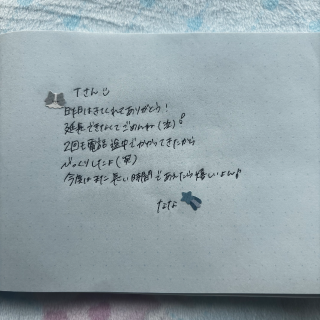 Tさん
昨日はきてくれてありがとう!
延長できなくてごめんね(泣)
2回も電話途中でかかってきたから
びっくりしたよ(笑)
今度はまた長い時間であえたら嬉しいよん♪
ななよ